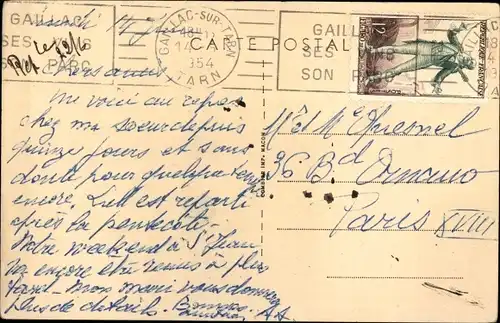 GAILLAC
SES VINS
SON PARC
GAILLAC-SUR-TARN
TARN
18H
14-6
1954
CARTE POSTALE
GAILLAC
SES VINS
SON PARC
12F
REPUBLIQUE FRANÇAISE
Lundi 14 Juin
Chers amis
Me voici au repos
chez ma soeur depuis
quinze jours et sans
doute pour quelque temps
encore. est reparti
après la pentecôte.
Notre weekend à St Jean
encore été remis à plus
tard. Mon mari vous donnera
plus de détails. Bonnes
Mr et Me
96 Bd Ornano
Paris XVIII
COMBIER IMP. MACON